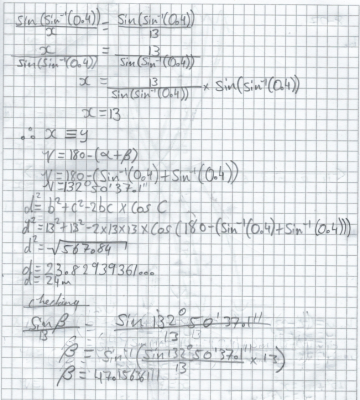 sin(sin⁻¹(0.4)) / x = sin(sin⁻¹(0.4)) / 13
x / sin(sin⁻¹(0.4)) = 13 / sin(sin⁻¹(0.4))
x = 13 / sin(sin⁻¹(0.4)) × sin(sin⁻¹(0.4))
x = 13
∴ x ≡ y
γ = 180-(α+β)
γ = 180-(sin⁻¹(0.4)+sin⁻¹(0.4))
γ = 132°50'37.1"
d² = b²+c²-2bc × cos C
d² = 13²+13²-2×13×13×cos(180-(sin⁻¹(0.4)+sin⁻¹(0.4)))
d² = √567.84
d = 23.82939361...
d = 24m
checking
sin β / 13 = sin 132°50'37.1" / 13
β = sin⁻¹(sin 132°50'37.1" / 13 × 13)